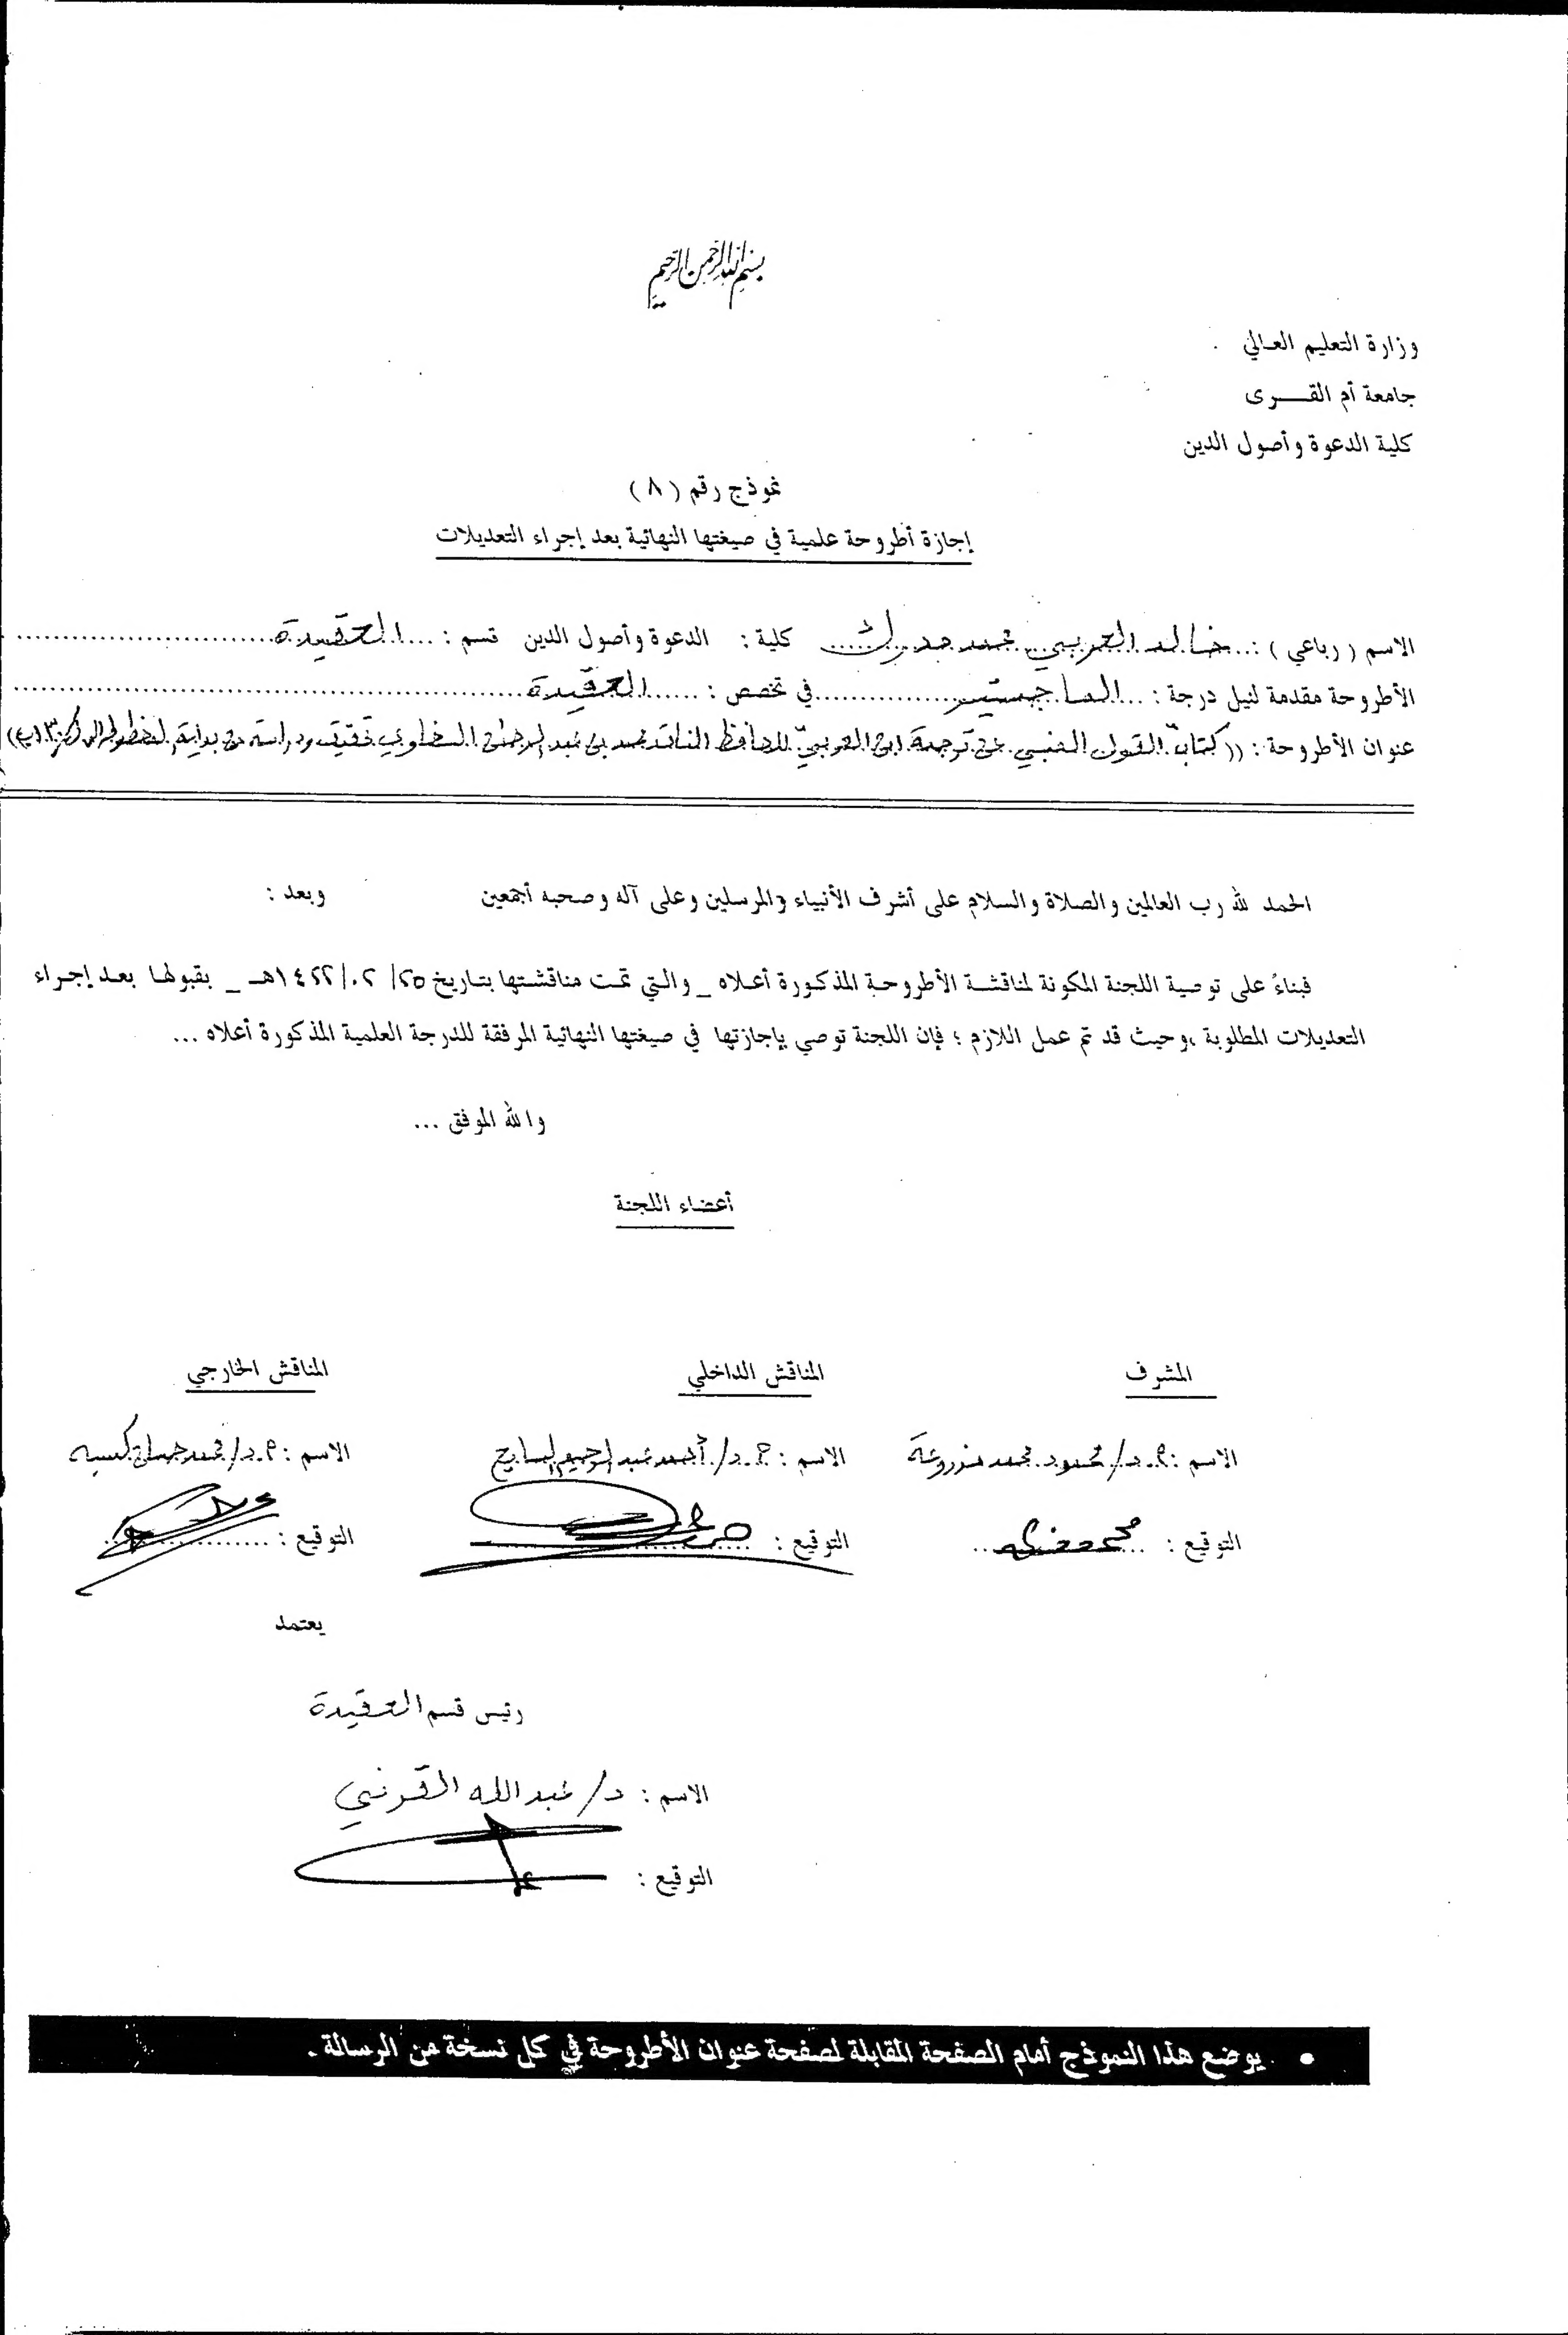 بسم الله الرحمن الرحيم
وزارة التعليم العالي
جامعة أم القـــرى
كلية الدعوة وأصول الدين
نموذج رقم ( ٨ )
إجازة أطروحة علمية في صيغتها النهائية بعد إجراء التعديلات
الاسم ( رباعي ) : خالد العربي محمد مدرك كلية : الدعوة وأصول الدين قسم : العقيدة
الأطروحة مقدمة لنيل درجة : الماجستير في تخصص : العقيدة
عنوان الأطروحة : (( كتاب القول المنبي عن ترجمة ابن العربي للحافظ الناقد محمد بن عبد الرحمن السخاوي تحقيق ودراسة من بداية المخطوط إلى
الحمد لله رب العالمين والصلاة والسلام على أشرف الأنبياء والمرسلين وعلى آله وصحبه أجمعين وبعد :
فبناءً على توصية اللجنة المكونة لمناقشة الأطروحة المذكورة أعلاه _ والتي تمت مناقشتها بتاريخ ٢٥/ ٠٢ /١٤٢٢هـ _ بقبولها بعد إجراء
التعديلات المطلوبة ،وحيث قد تم عمل اللازم ؛ فإن اللجنة توصي بإجازتها في صيغتها النهائية المرفقة للدرجة العلمية المذكورة أعلاه ...
والله الموفق ...
أعضاء اللجنة
المشرف المناقش الداخلي المناقش الخارجي
الاسم : أ.د/ محمود محمد مزروعة الاسم : أ.د/ أحمد عبد الرحيم السايح الاسم : أ.د/ محمد حسان كسبه
التوقيع : التوقيع : التوقيع :
يعتمد
رئيس قسم العقيدة
الاسم : د/ عبد الله القرني
التوقيع :
• يوضع هذا النموذج أمام الصفحة المقابلة لصفحة عنوان الأطروحة في كل نسخة من الرسالة .